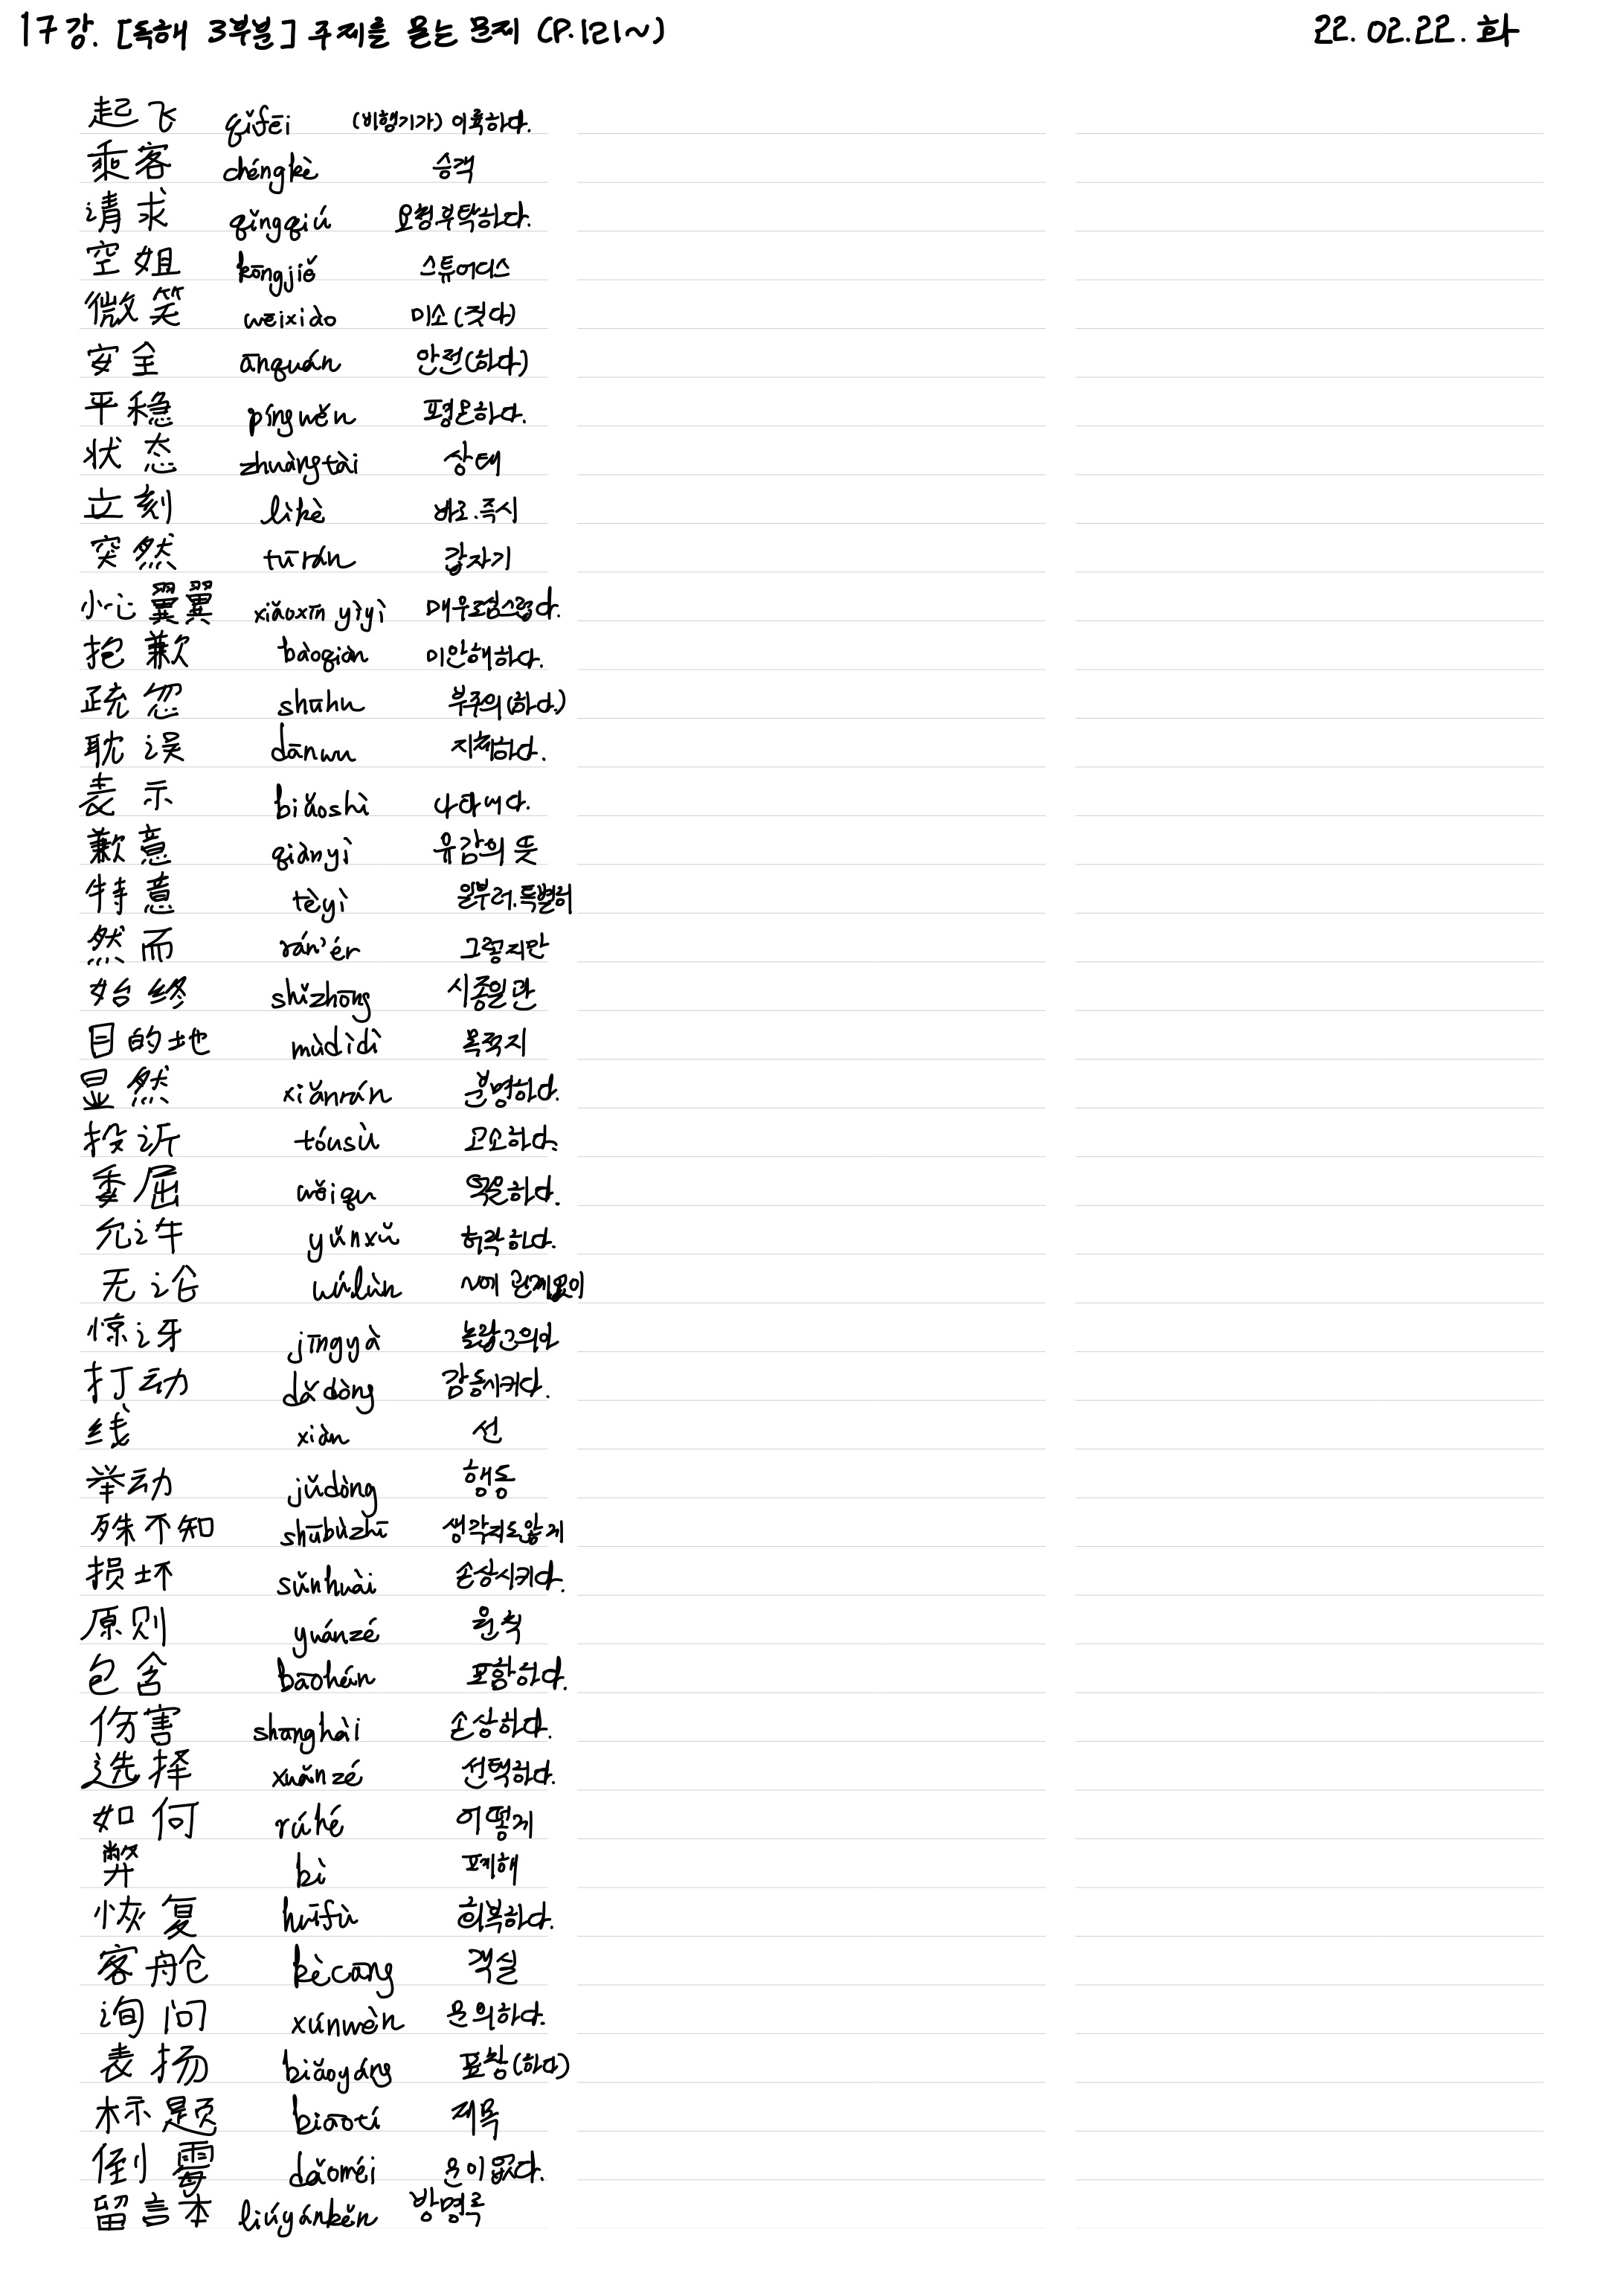 17강. [독해 3부분] 주제를 묻는 문제 (P.121~) 22. 02. 22. 화
起飞 qǐfēi (비행기가) 이륙하다.
乘客 chéngkè 승객
请求 qǐngqiú 요청.부탁하다.
空姐 kōngjiě 스튜어디스
微笑 wēixiào 미소 (짓다)
安全 ānquán 안전(하다)
平稳 píngwěn 평온하다.
状态 zhuàngtài 상태
立刻 lìkè 바로.즉시
突然 tūrán 갑자기
小心翼翼 xiǎoxīn yìyì 매우조심스럽다.
抱歉 bàoqiàn 미안해하다.
疏忽 shūhu 부주의(하다.)
耽误 dānwu 지체하다.
表示 biǎoshì 나타내다.
歉意 qiànyì 유감의 뜻
特意 tèyì 일부러.특별히
然而 rán'ér 그렇지만
始终 shǐzhōng 시종일관
目的地 mùdìdì 목적지
显然 xiǎnrán 분명하다.
投诉 tóusù 고소하다.
委屈 wěiqu 억울하다.
允许 yǔnxǔ 허락하다.
无论 wúlùn ~에 관계없이
惊讶 jīngyà 놀랍고의아
打动 dǎdòng 감동시키다.
线 xiàn 선
举动 jǔdòng 행동
殊不知 shūbùzhī 생각지도않게
损坏 sǔnhuài 손상시키다.
原则 yuánzé 원칙
包含 bāohán 포함하다.
伤害 shānghài 손상하다.
选择 xuǎnzé 선택하다.
如何 rúhé 어떻게
弊 bì 폐해
恢复 huīfù 회복하다.
客舱 kècāng 객실
询问 xúnwèn 문의하다.
表扬 biǎoyáng 표창(하다)
标题 biāotí 제목
倒霉 dǎoméi 운이 없다.
留言本 liúyánběn 방명록